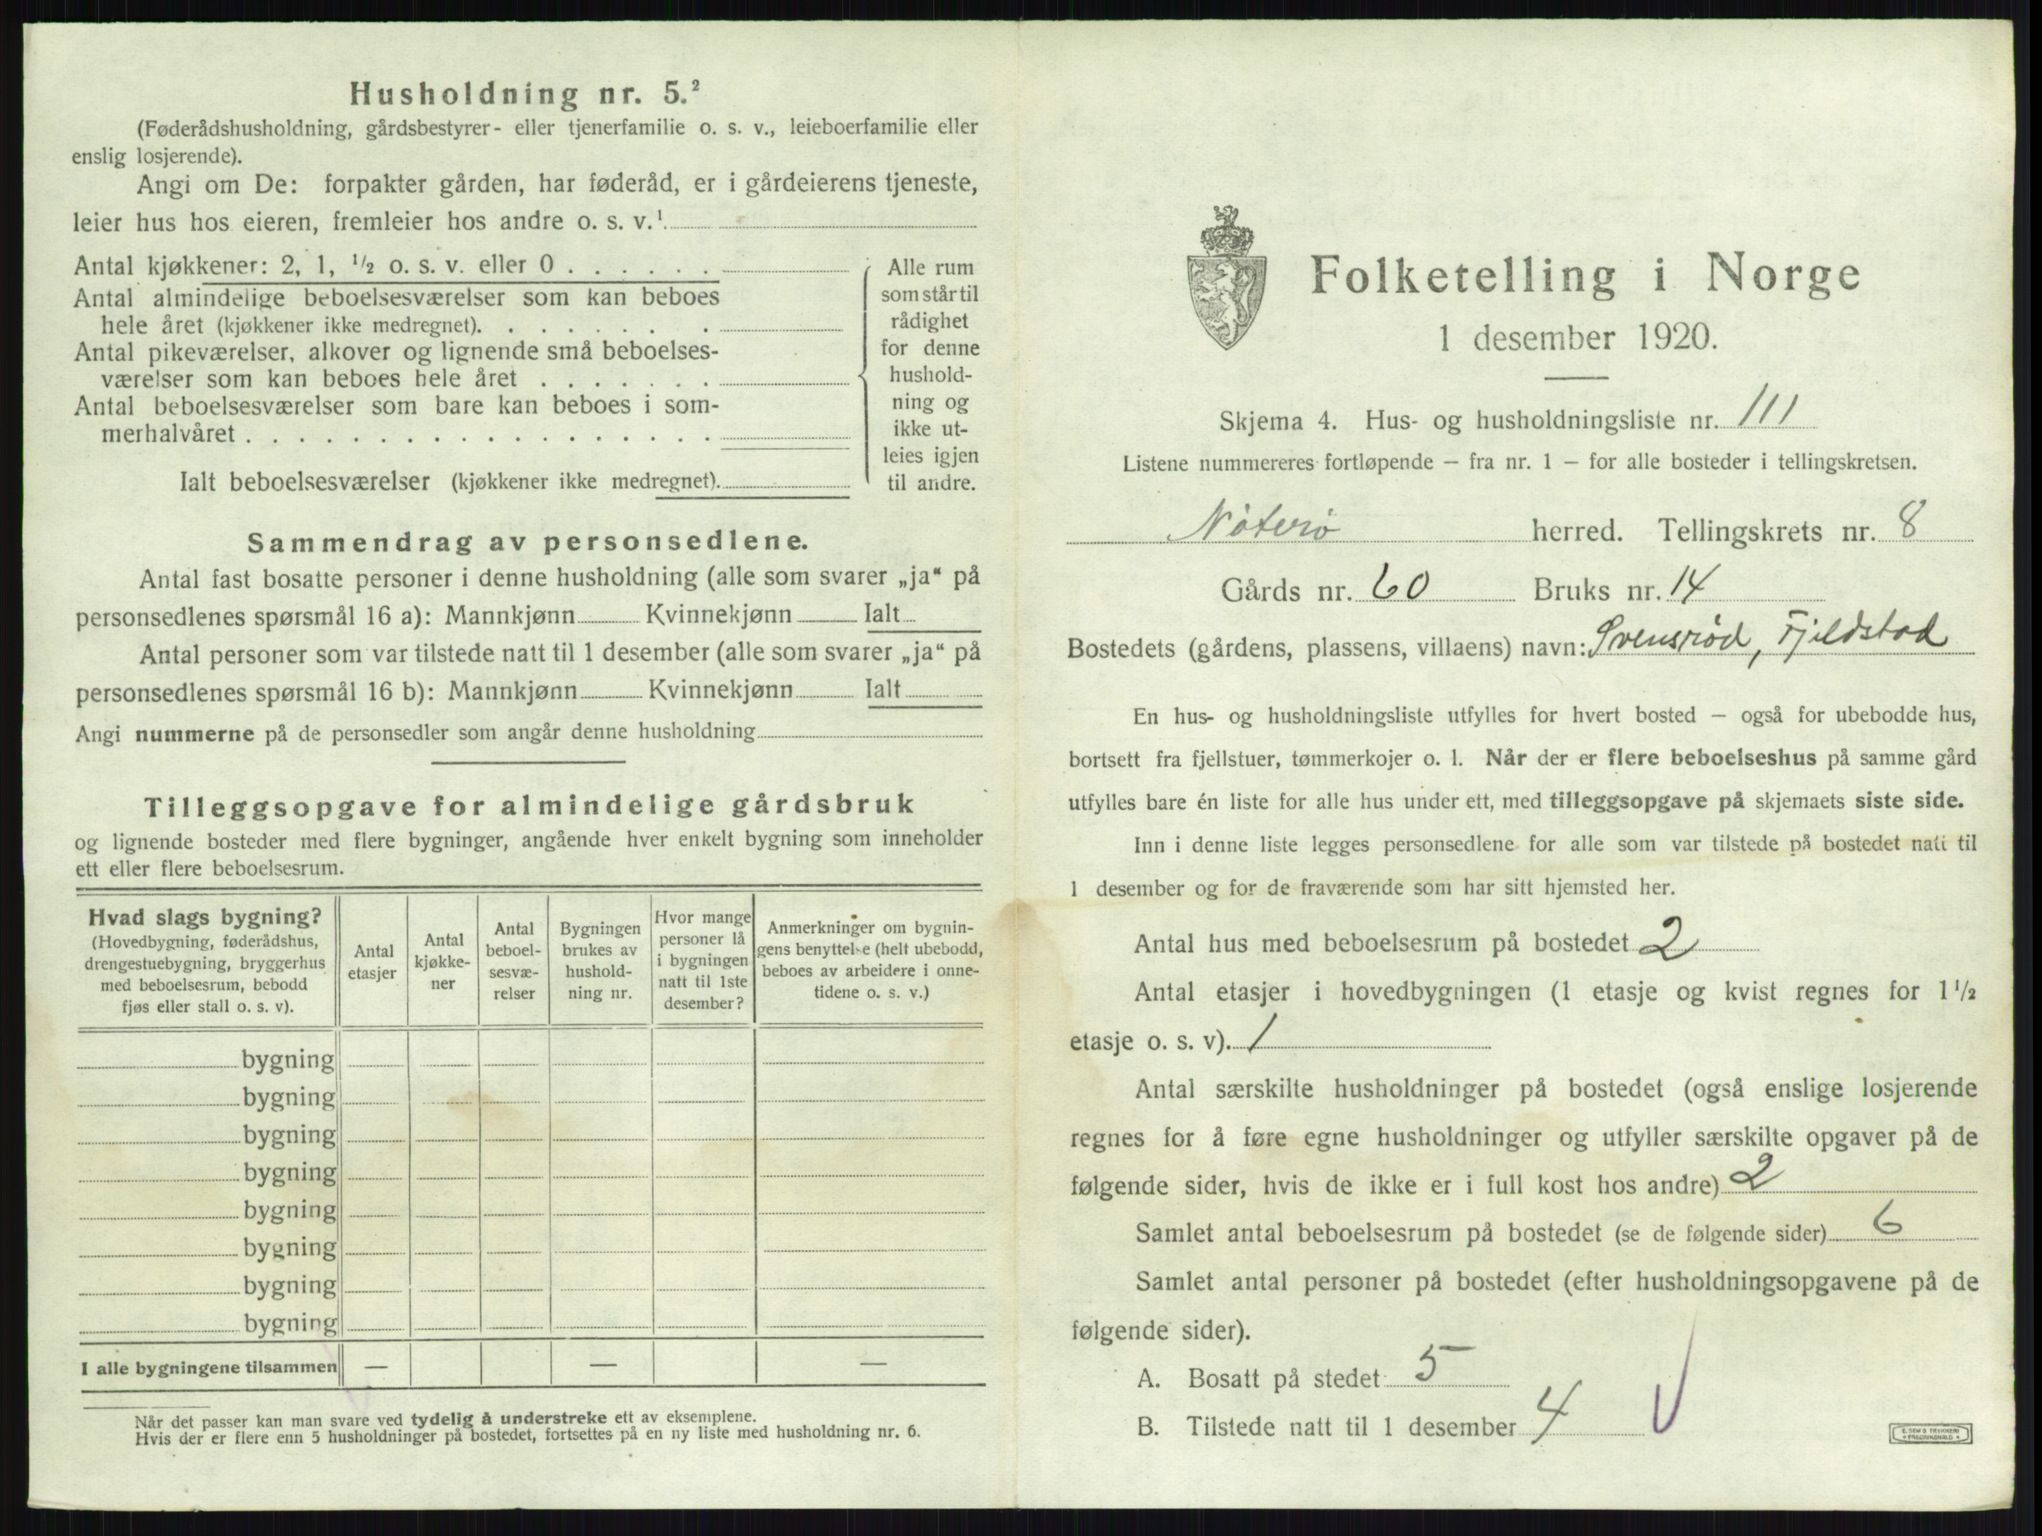 Husholdning nr. 5.²
(Føderådshusholdning, gårdsbestyrer- eller tjenerfamilie o. s. v., leieboerfamilie eller
enslig losjerende).
Angi om De: forpakter gården, har føderåd, er i gårdeierens tjeneste,
leier hus hos eieren, fremleier hos andre o. s. v.¹
Antal kjøkkener: 2, 1, ¹/₂ o. s. v. eller 0 . . . . . .
Antal almindelige beboelsesværelser som kan beboes
hele året (kjøkkener ikke medregnet). . . . . . . . .
Antal pikeværelser, alkover og lignende små beboelses-
værelser som kan beboes hele året . . . . . . .
Antal beboelsesværelser som bare kan beboes i som-
merhalvåret . . . . . . . . . . . . . . . . . .
Ialt beboelsesværelser (kjøkkener ikke medregnet).
Alle rum
som står til
rådighet
for denne
hushold-
ning og
ikke ut-
leies igjen
til andre.
Sammendrag av personsedlene.
Antal fast bosatte personer i denne husholdning (alle som svarer „ja“ på
personsedlenes spørsmål 16 a): Mannkjønn Kvinnekjønn Ialt
Antal personer som var tilstede natt til 1 desember (alle som svarer „ja“ på
personsedlenes spørsmål 16 b): Mannkjønn Kvinnekjønn Ialt
Angi nummerne på de personsedler som angår denne husholdning
Tilleggsopgave for almindelige gårdsbruk
og lignende bosteder med flere bygninger, angående hver enkelt bygning som inneholder
ett eller flere beboelsesrum.
Hvad slags bygning?
(Hovedbygning, føderådshus,
drengestuebygning, bryggerhus
med beboelsesrum, bebodd
fjøs eller stall o. s. v).
Antal
etasjer
Antal
kjøkke-
ner
Antal
beboel-
sesvæ-
relser
Bygningen
brukes av
hushold-
ning nr.
Hvor mange
personer lå
i bygningen
natt til 1ste
desember?
Anmerkninger om bygnin-
gens benyttelse (helt ubebodd,
beboes av arbeidere i onne-
tidene o. s. v.)
bygning
bygning
bygning
bygning
bygning
bygning
bygning
bygning
I alle bygningene tilsammen — — —
Når det passer kan man svare ved tydelig å understreke ett av eksemplene.
Hvis der er flere enn 5 husholdninger på bostedet, fortsettes på en ny liste med husholdning nr. 6.
Folketelling i Norge
1 desember 1920.
Skjema 4. Hus- og husholdningsliste nr. 111
Listene nummereres fortløpende – fra nr. 1 – for alle bosteder i tellingskretsen.
Nøterø herred. Tellingskrets nr. 8
Gårds nr. 60 Bruks nr. 14
Bostedets (gårdens, plassens, villaens) navn: Svensrød, Fjeldstad
En hus- og husholdningsliste utfylles for hvert bosted – også for ubebodde hus,
bortsett fra fjellstuer, tømmerkojer o. l. Når der er flere beboelseshus på samme gård
utfylles bare én liste for alle hus under ett, med tilleggsopgave på skjemaets siste side.
Inn i denne liste legges personsedlene for alle som var tilstede på bostedet natt til
1 desember og for de fraværende som har sitt hjemsted her.
Antal hus med beboelsesrum på bostedet 2
Antal etasjer i hovedbygningen (1 etasje og kvist regnes for 1 ¹/₂
etasje o. s. v). 1
Antal særskilte husholdninger på bostedet (også enslige losjerende
regnes for å føre egne husholdninger og utfyller særskilte opgaver på de
følgende sider, hvis de ikke er i full kost hos andre) 2
Samlet antal beboelsesrum på bostedet (se de følgende sider) 6
Samlet antal personer på bostedet (efter husholdningsopgavene på de
følgende sider).
A. Bosatt på stedet 5
B. Tilstede natt til 1 desember 4